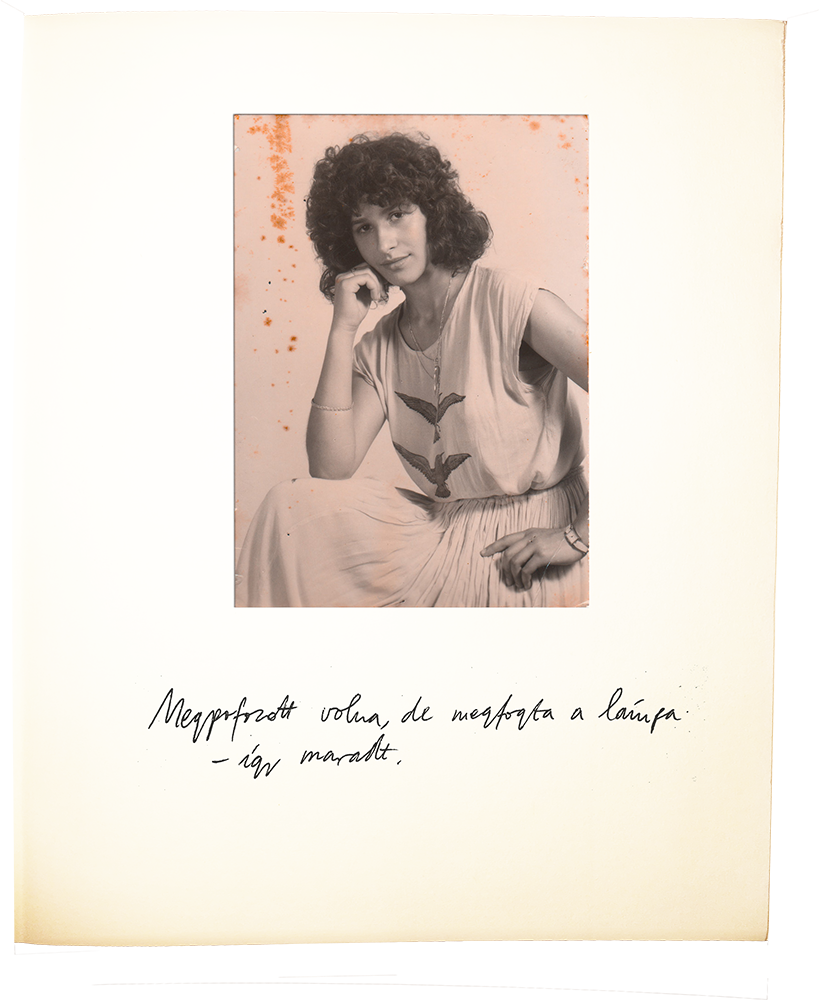 Megpofozott volna, de megfogta a lámpa
– így maradt.